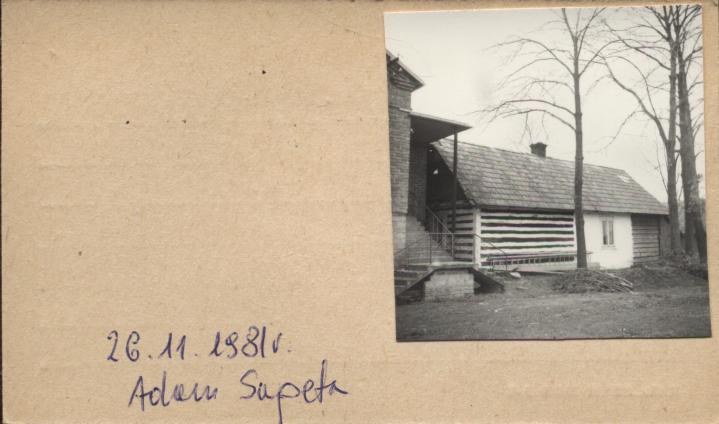 26.11.1981r.
Adam Sapeta